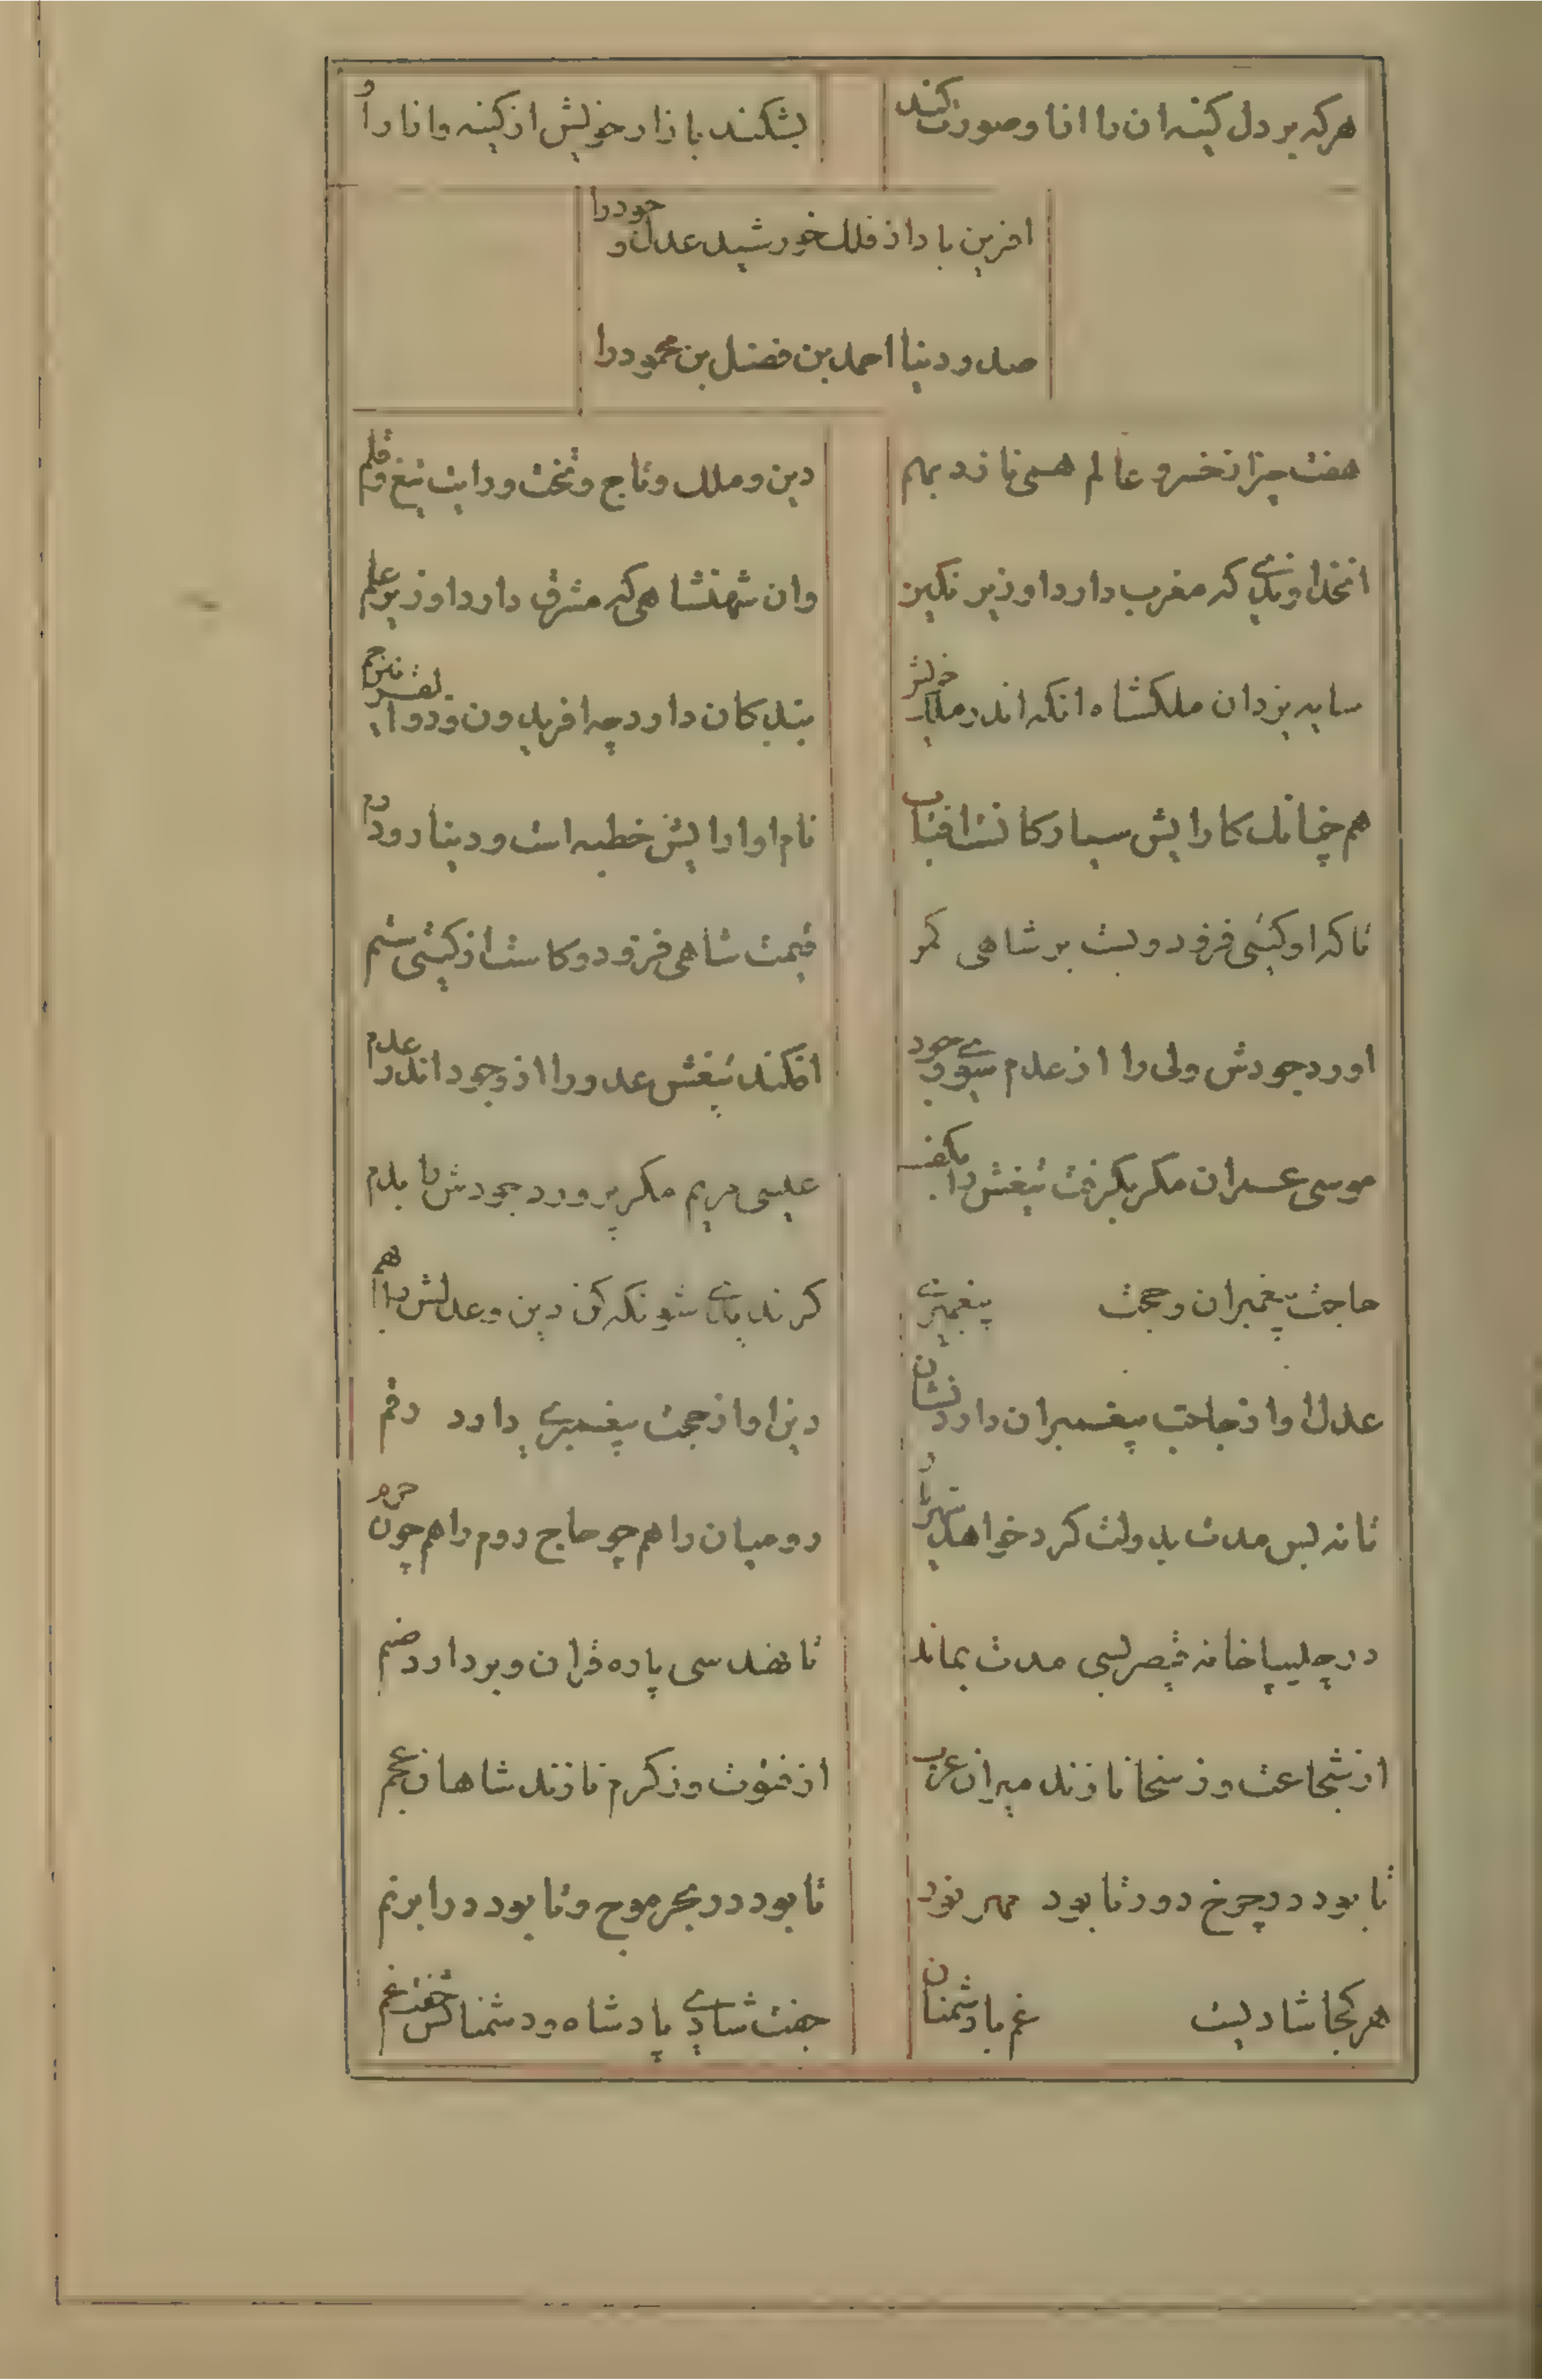 هرکه بر دل کینه ان را انا و صورت کند
بشکند بازار خویش از کینه وانا را و
افرین باد از فلک خورشید عدل و جود را
صدر و دنیا احمد بن فضل بن محمود را
هفت چیز از خسرو عالم همی نازد بهم
دین و ملک و تاج و تخت و رایت تیغ و قلم
انخداوندی که مغرب دارد او زیر نکین
وان شهنشاهی که مشرق دارد او زیر علم
سایه یزدان ملکشاه انکه اندر ملک خویش
بندکان دارد چه افریدون و دوا
هم چنانک کارایش سیارکانست افتاب
نام او ارایش خطبه است و دینار و درم
تا که او کیتی فزود و بست بر شاهی کمر
قیمت شاهی فزود و کاست از کیتی ستم
اورد جودش ولی را از عدم سوی وجود
افکند تیغش عدو را از وجود اندر عدم
موسی عمران مکر بکرفت تیغش را بکف
عیسی مریم مکر پرورد جودش را بدم
حاجت پیغمبران و حجت پیغمبری
کر ندیدی شو نکه کن دین و عدلش را بهم
عدل او از حاجت پیغمبران دارد نشان
دین او از حجت پیغمبری دارد رقم
تا نه بس مدت بدولت کرد خواهد شهریار
رومیان را هم چو حاج روم را هم چون حرم
در چلیپا خانه قیصر بسی مدت بماند
تا نهد سی پاره قران و بردارد صنم
از شجاعت وز سخا نازند میران عرب
از فتوت وز کرم نازند شاهان عجم
تا بود در چرخ دور تا بود مهر نور
تا بود در بحر موج و تا بود در ابر نم
هر کجا شادیست غم باد دشمنان
جفت شادی پادشاه و دشمنانش جفت غم